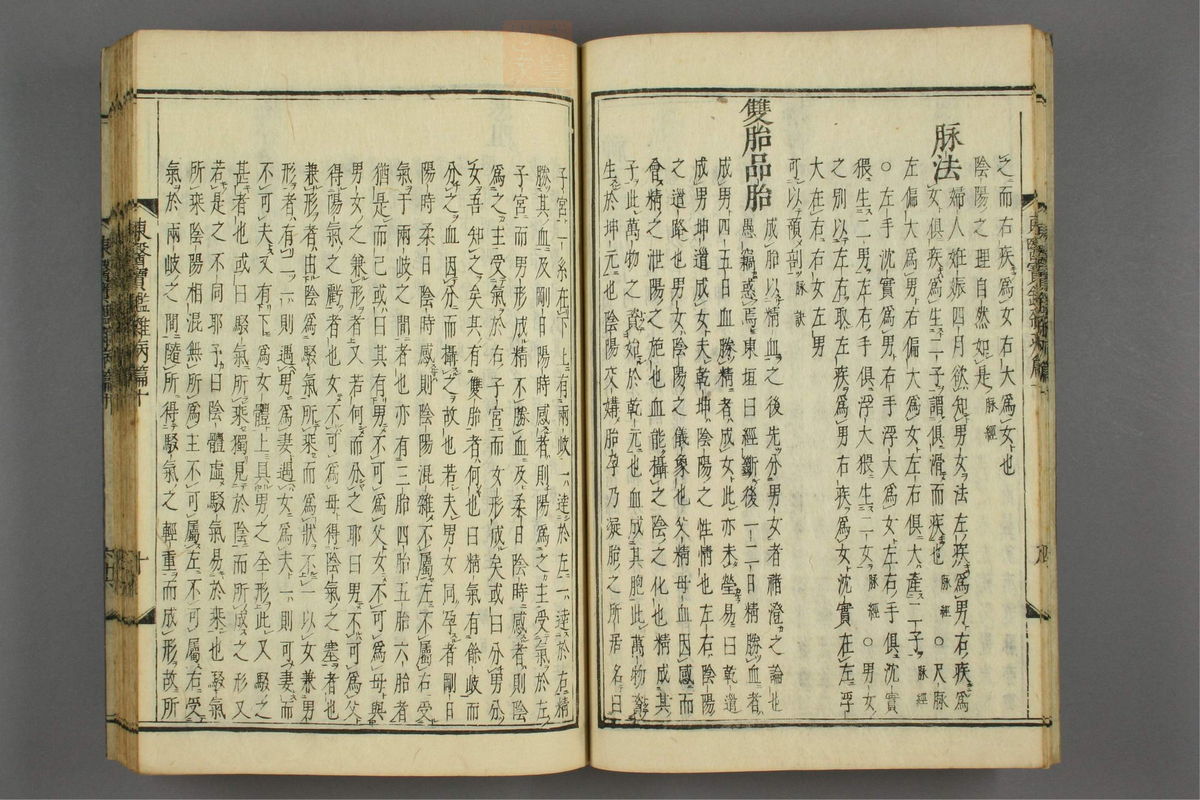 之而右疾爲女右大爲女也
陰陽之理自然如是脉經
脉法
婦人妊娠四月欲知男女法左疾爲男右疾爲
女俱疾爲生二子謂俱滑而疾也脉經○尺脉
左偏大爲男右偏大爲女左右俱大產二子脉經
○左手沈實爲男右手浮大爲女左右手俱沈實
猥生二男左右手俱浮大猥生二女脉經○男女
之別以左右取左疾爲男右疾爲女沈實在左浮
大在右右女左男
可以預剖脉訣
雙胎品胎
成胎以精血之後先分男女者褚澄之論也
愚竊惑焉東垣曰經斷後一二日精勝血者
成男四五日血勝精者成女此亦未瑩易曰乾道
成男坤道成女夫乾坤陰陽之性情也左右陰陽
之道路也男女陰陽之儀象也父精母血因感而
會精之泄陽之施也血能攝之陰之化也精成其
子此萬物資始於乾元也血成其胞此萬物資
生於坤元也陰陽交媾胎孕乃凝胎之所居名曰
子宮一系在下上有兩岐一達於左一達於右精
勝其血及剛日陽時感者則陽爲之主受氣於左
子宮而男形成精不勝血及柔日陰時感者則陰
爲之主受氣於右子宮而女形成矣或曰分男分
女吾知之矣其有雙胎者何也曰精氣有餘岐而
分之血因分而攝之故也若夫男女同孕者剛日
陽時柔日陰時感則陰陽混雜不屬左不屬右受
氣于兩岐之間者也亦有三胎四胎五胎六胎者
猶是而已或曰其有男不可爲父女不可爲母與
男女之兼形者又若何而分之耶曰男不可爲父
得陽氣之虧者也女不可爲母得陰氣之塞者也
兼形者由陰爲駁氣所乘而爲狀不一以女兼男
形者有二一則遇男爲妻遇女爲夫一則可妻而
不可夫又有下爲女體上具男之全形此又駁之
甚者也或曰駁氣所乘獨見於陰而所成之形又
若是之不同耶予曰陰體虛駁氣易於乘也駁氣
所乘陰陽相混無所爲主不可屬左不可屬右受
氣於兩岐之間隨所得駁氣之輕重而成形故所
東醫寶鑑雜病篇十
十